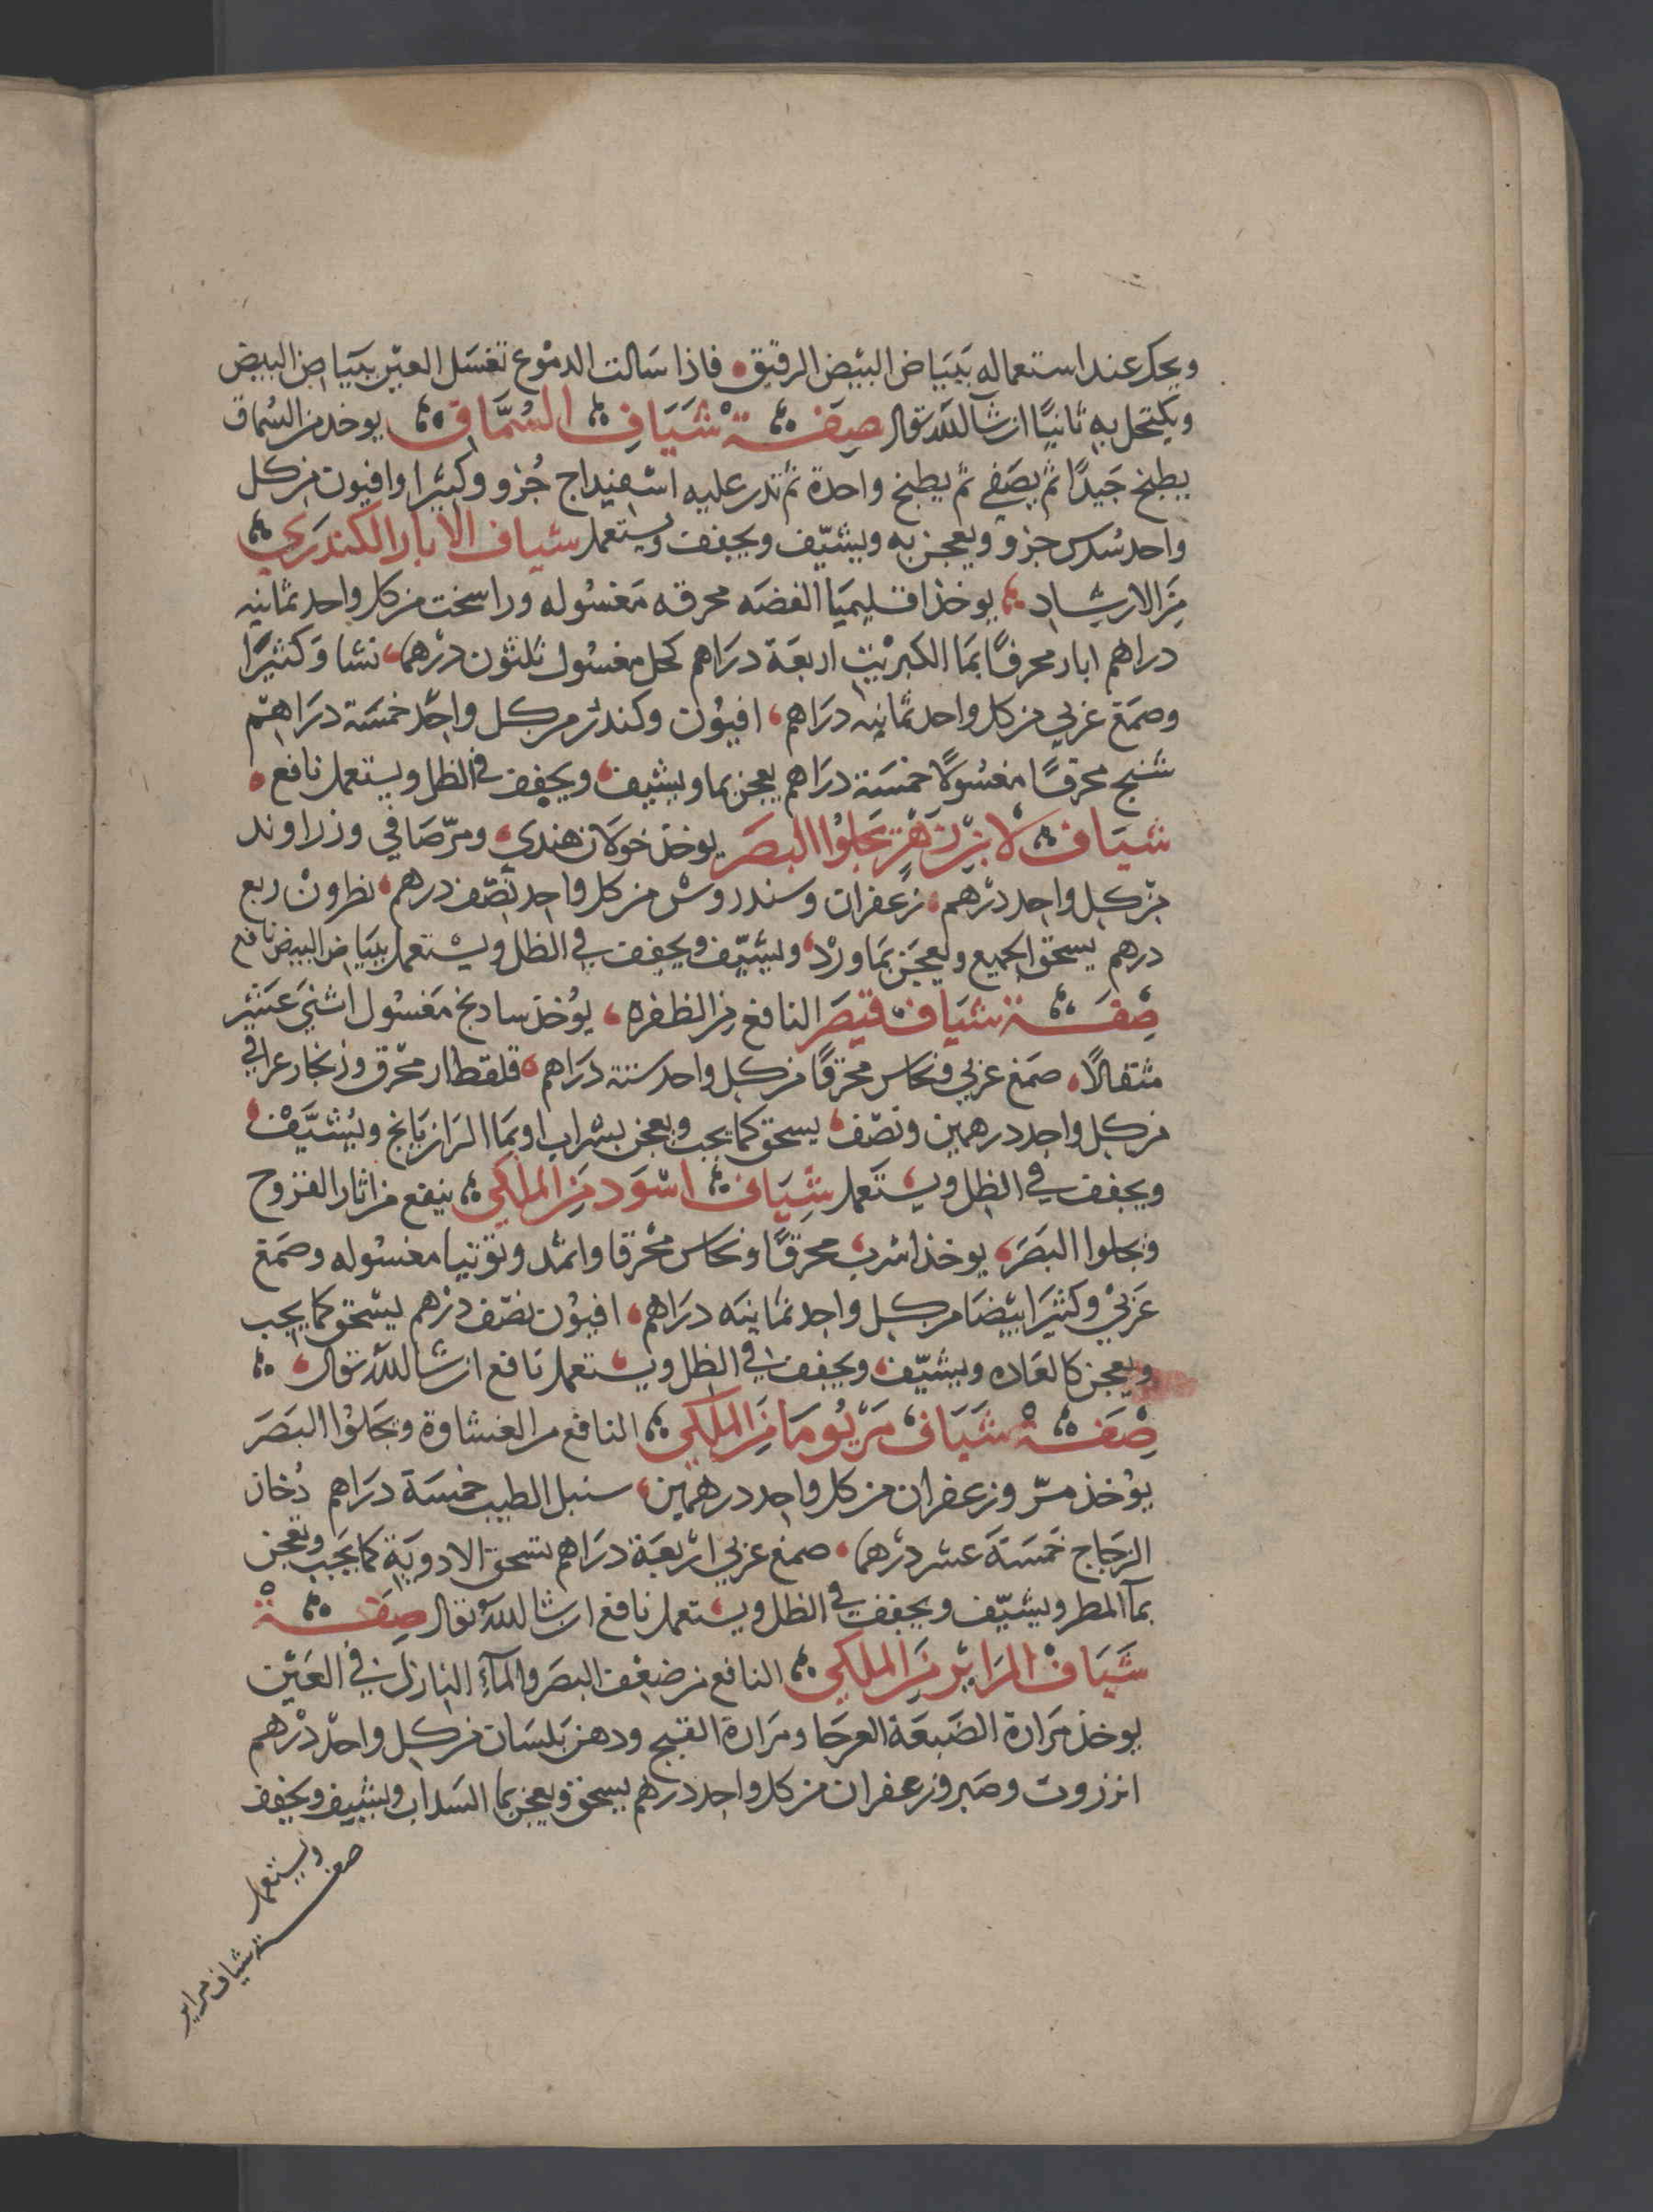 ويحك عند استعماله ببَيَاض البيض الرقيق فاذا سَالت الدموع تغسَل العين ببيَاض البيض
ويكتحل به ثانيًا ان شآ الله تعالى صِفَة شَيَافِ السُمَّاقِ يوخد من السُماق
يطبخ جَيدًا ثم يصَفي ثم يطبخ واحدة ثم تدر عليه اسفيداج جُزو وكثيرا وافيون من كل
واحد سُدس جزو ويعجن به ويشيّف ويجفف ويستعمل شياف الابار الكندري
مِنَ الارشاد يوخذ اقليميَا الفضَه محرقه مَغسُوله وراسخت من كل واحد ثمانيه
دراهم ابار محرقًا بمَا الكبريْت اربعَة درَاهم كحل مغسُول ثلثون درْهما نشا وَكثيرًا
وصمَغ عَربي من كل واحد ثمانيه درَاهم افيُون وكندر من كل واحد خمسَة درَاهم
شنج محرقًا مغسُولًا خمسَة درَاهم يعجن بما ويشيف ويجفف في الظل ويستعمل نافع
شيَاف لابن زهْر يجلوُا البصَر يوخذ خولان هندي ومرّ صَافي وزراوند
من كل واحد درْهم زعفران وسندروسْ من كل واحد نصّف درهم نطرونْ ربع
درهم يسحق الجميع ويعجَن بمَا ورْد ويشيّف ويجفف في الظل ويسْتعمل ببيَاض البيض نافع
صِفَة شيَاف قيصَر النافع من الظفره يوُخذ سادنج مَغسُول اثنيَ عَشر
مثقالًا صمَغ عَربي ونحاس محرقًا من كل واحد ستة درَاهم قلقطار محرّق وزنجار عراقي
من كل واحد درهمين ونصّف يسحق كما يجب ويعجن بشراب او بمَا الرَازيَانج ويُشيَّفْ
ويجفف في الظل ويستَعمل شِيَاف اسْوَد مِنَ الملكي ينفع من اثار القروح
ويجلوا البَصَر يوخذ اسرب محرقًا ونحاس محْرقا واثمد وتوتيا مغسُوله وصَمغ
عَربيْ وكثيرَا بيْضَا من كل واحد ثمانيَه درَاهم افيُون نصّف درْهم يسْحق كما يجب
ويعجن كالعَاده ويشيّف ويجفف في الظل ويستعمل نافع ان شا الله تعالى
صِفَةْ شيَافْ مَرْيُومَا مِنَ الملكي النافع من الغشاوة ويَجَلوُا البَصَرَ
يوُخذ مرّ وزعفران من كل واحد درهمين سنبل الطيب خمسَة درَاهم دُخان
الزجَاج خَمسَة عشر درْهما صمغ عربي ارْبعَة درَاهم تسحق الادويَة كما يجَبب وتعجن
بمآ المطر ويشيّف ويجفف في الظل ويستعمل نافع ان شا الله تعالى صِفَةْ
شيَافْ المرَاير مِنَ الملكي النافع من ضعْف البصَر والمآء النازل في العَين
يوخذ مَرارة الضَبعَة العرجَا ومَرارة القبج ودهن بَلسَان من كل واحد درْهم
انزروت وصَبر وزعفران من كل واحد درهم يسحق ويعجن بما السَداب ويشيف ويجفف
ويستعمل
صفة شياف مراير